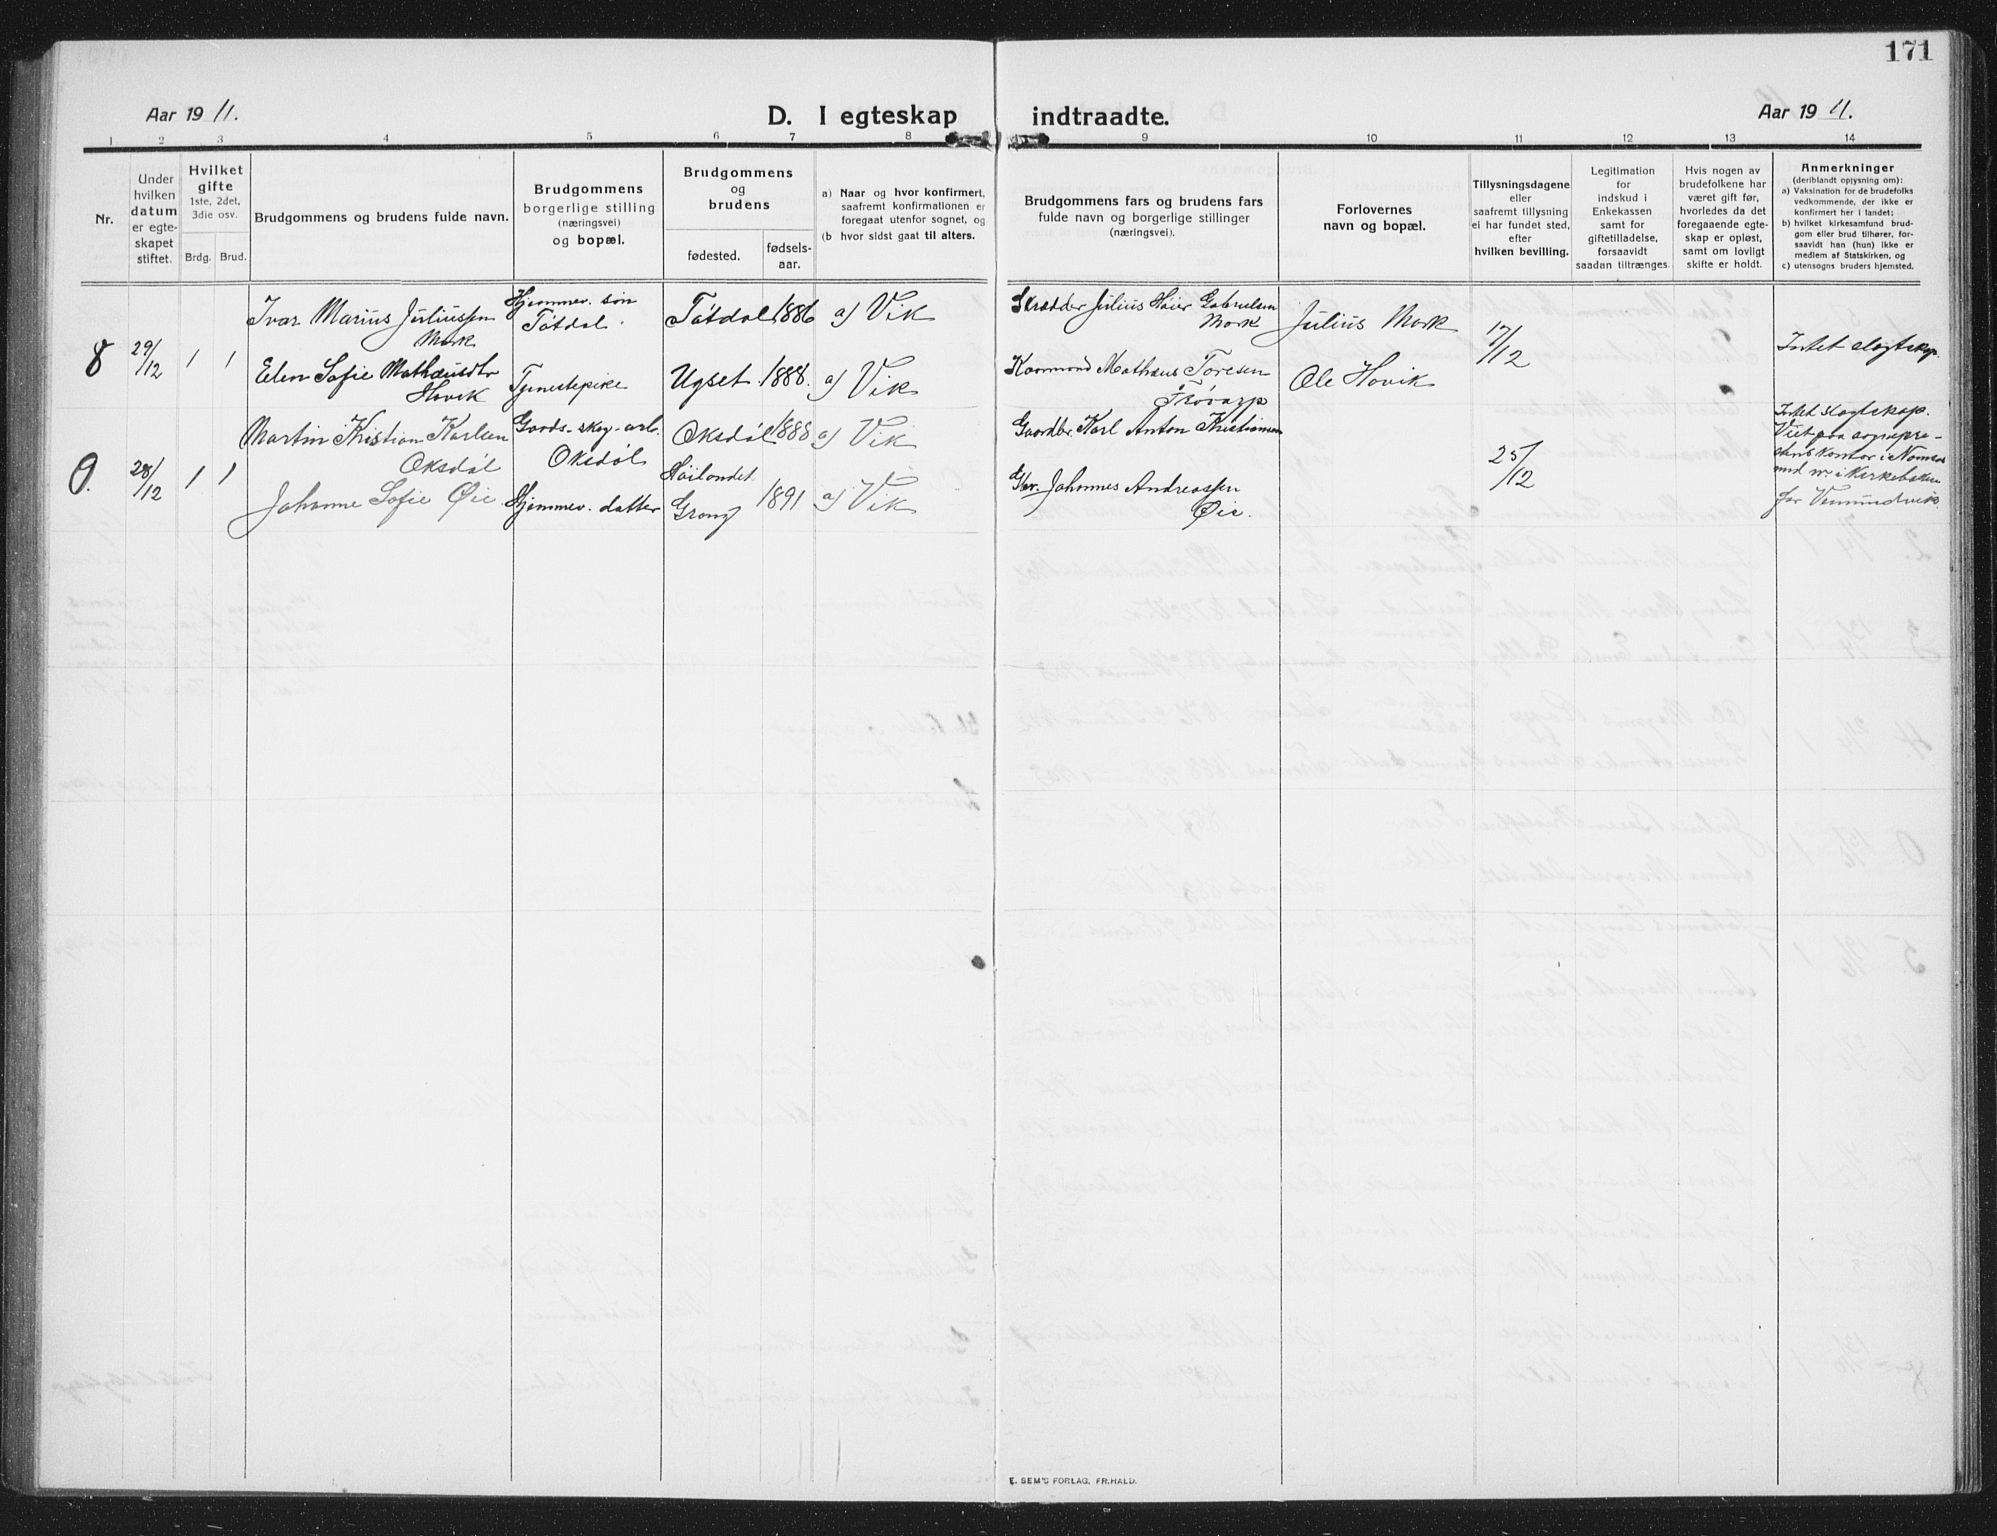 171
Aar 19 11.
D. I egteskap
indtraadte.
Aar 19 11.
1 2 3 4 5 6 7 8 9 10 11 12 13 14
Nr.
Under
hvilken
datum
er egte-
skapet
stiftet.
Hvilket
gifte
1ste, 2det,
3die osv.
Brdg. Brud.
Brudgommens og brudens fulde navn.
Brudgommens
borgerlige stilling
(næringsvei)
og bopæl.
Brudgommens
og
brudens
fødested.
fødsels-
aar.
a) Naar og hvor konfirmert,
saafremt konfirmationen er
foregaat utenfor sognet, og
(b hvor sidst gaat til alters.
Brudgommens fars og brudens fars
fulde navn og borgerlige stillinger
(næringsvei).
Forlovernes
navn og bopæl.
Tillysningsdagene
eller
saafremt tillysning
ei har fundet sted,
efter
hvilken bevilling.
Legitimation
for
indskud i
Enkekassen
samt for
giftetilladelse,
forsaavidt
saadan tiltrænges.
Hvis nogen av
brudefolkene har
været gift før,
hvorledes da det
foregaaende egte-
skap er opløst,
samt om lovligt
skifte er holdt.
Anmerkninger
(deriblandt opjysning om):
a) Vaksination for de brudefolks
vedkommende, der ikke er
konfirmert her i landet;
b) hvilket kirkesamfund brud-
gom eller brud tilhører, for-
saavidt han (hun) ikke er
medlem af Statskirken, og
c) utensogns bruders hjemsted.
8 29/12 1 1
Ivar Marius Juliussen
Mork
Hjemmev. søn
Tøtdal.
Tøtdal 1886 a) Vik
Skrædder Julius Høier Gabrielsen
Mork
Julius Mork
17/12
Intet slegtskap.
Elen Sofie Mathæusdtr
Hovik
Tjenestepike
Ugset 1888. a) Vik
Kaarmand Mathæus Toresen
Ole Hovik
9. 28/12 1 1
Martin Kristian Karlsen
Oksdøl
Gaards- skog- arb.
Oksdøl
Oksdøl 1888 a) Vik
Gaardbr. Karl Anton Kristiansen
25/12
Intet slegtskap.
Viet paa sognepre-
stens kontor i Namsos
for Vemundvik.
Johanne Sofie Øie
Hjemmev. datter
Høilandet
Grong 1891 a) Vik
Gbr. Johannes Andreassen
Øie.
E. SEM'S FORLAG, FR.HALD.